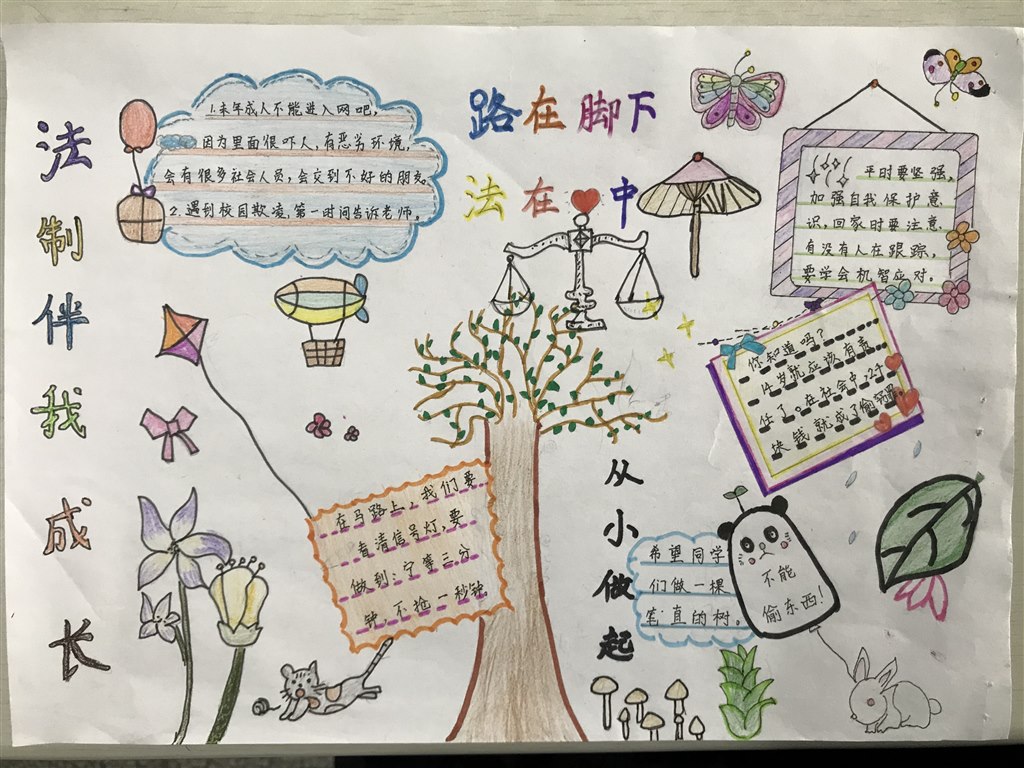 法制伴我成长
1.未年成人不能进入网吧，
因为里面很吓人，有恶劣环境，
会有很多社会人员，会交到不好的朋友。
2.遇到校园欺凌，第一时间告诉老师。
路在脚下
法在中
平时要坚强，
加强自我保护意
识，回家时要注意
有没有人在跟踪，
要学会机智应对。
你知道吗？
14岁就应该有责
任了。在社会中，2千
块钱就成了偷窃罪。
在马路上，我们要
看清信号灯，要
做到：宁等三分
钟，不抢一秒钟。
从小做起
希望同学
们做一棵
笔直的树。
不能
偷东西！